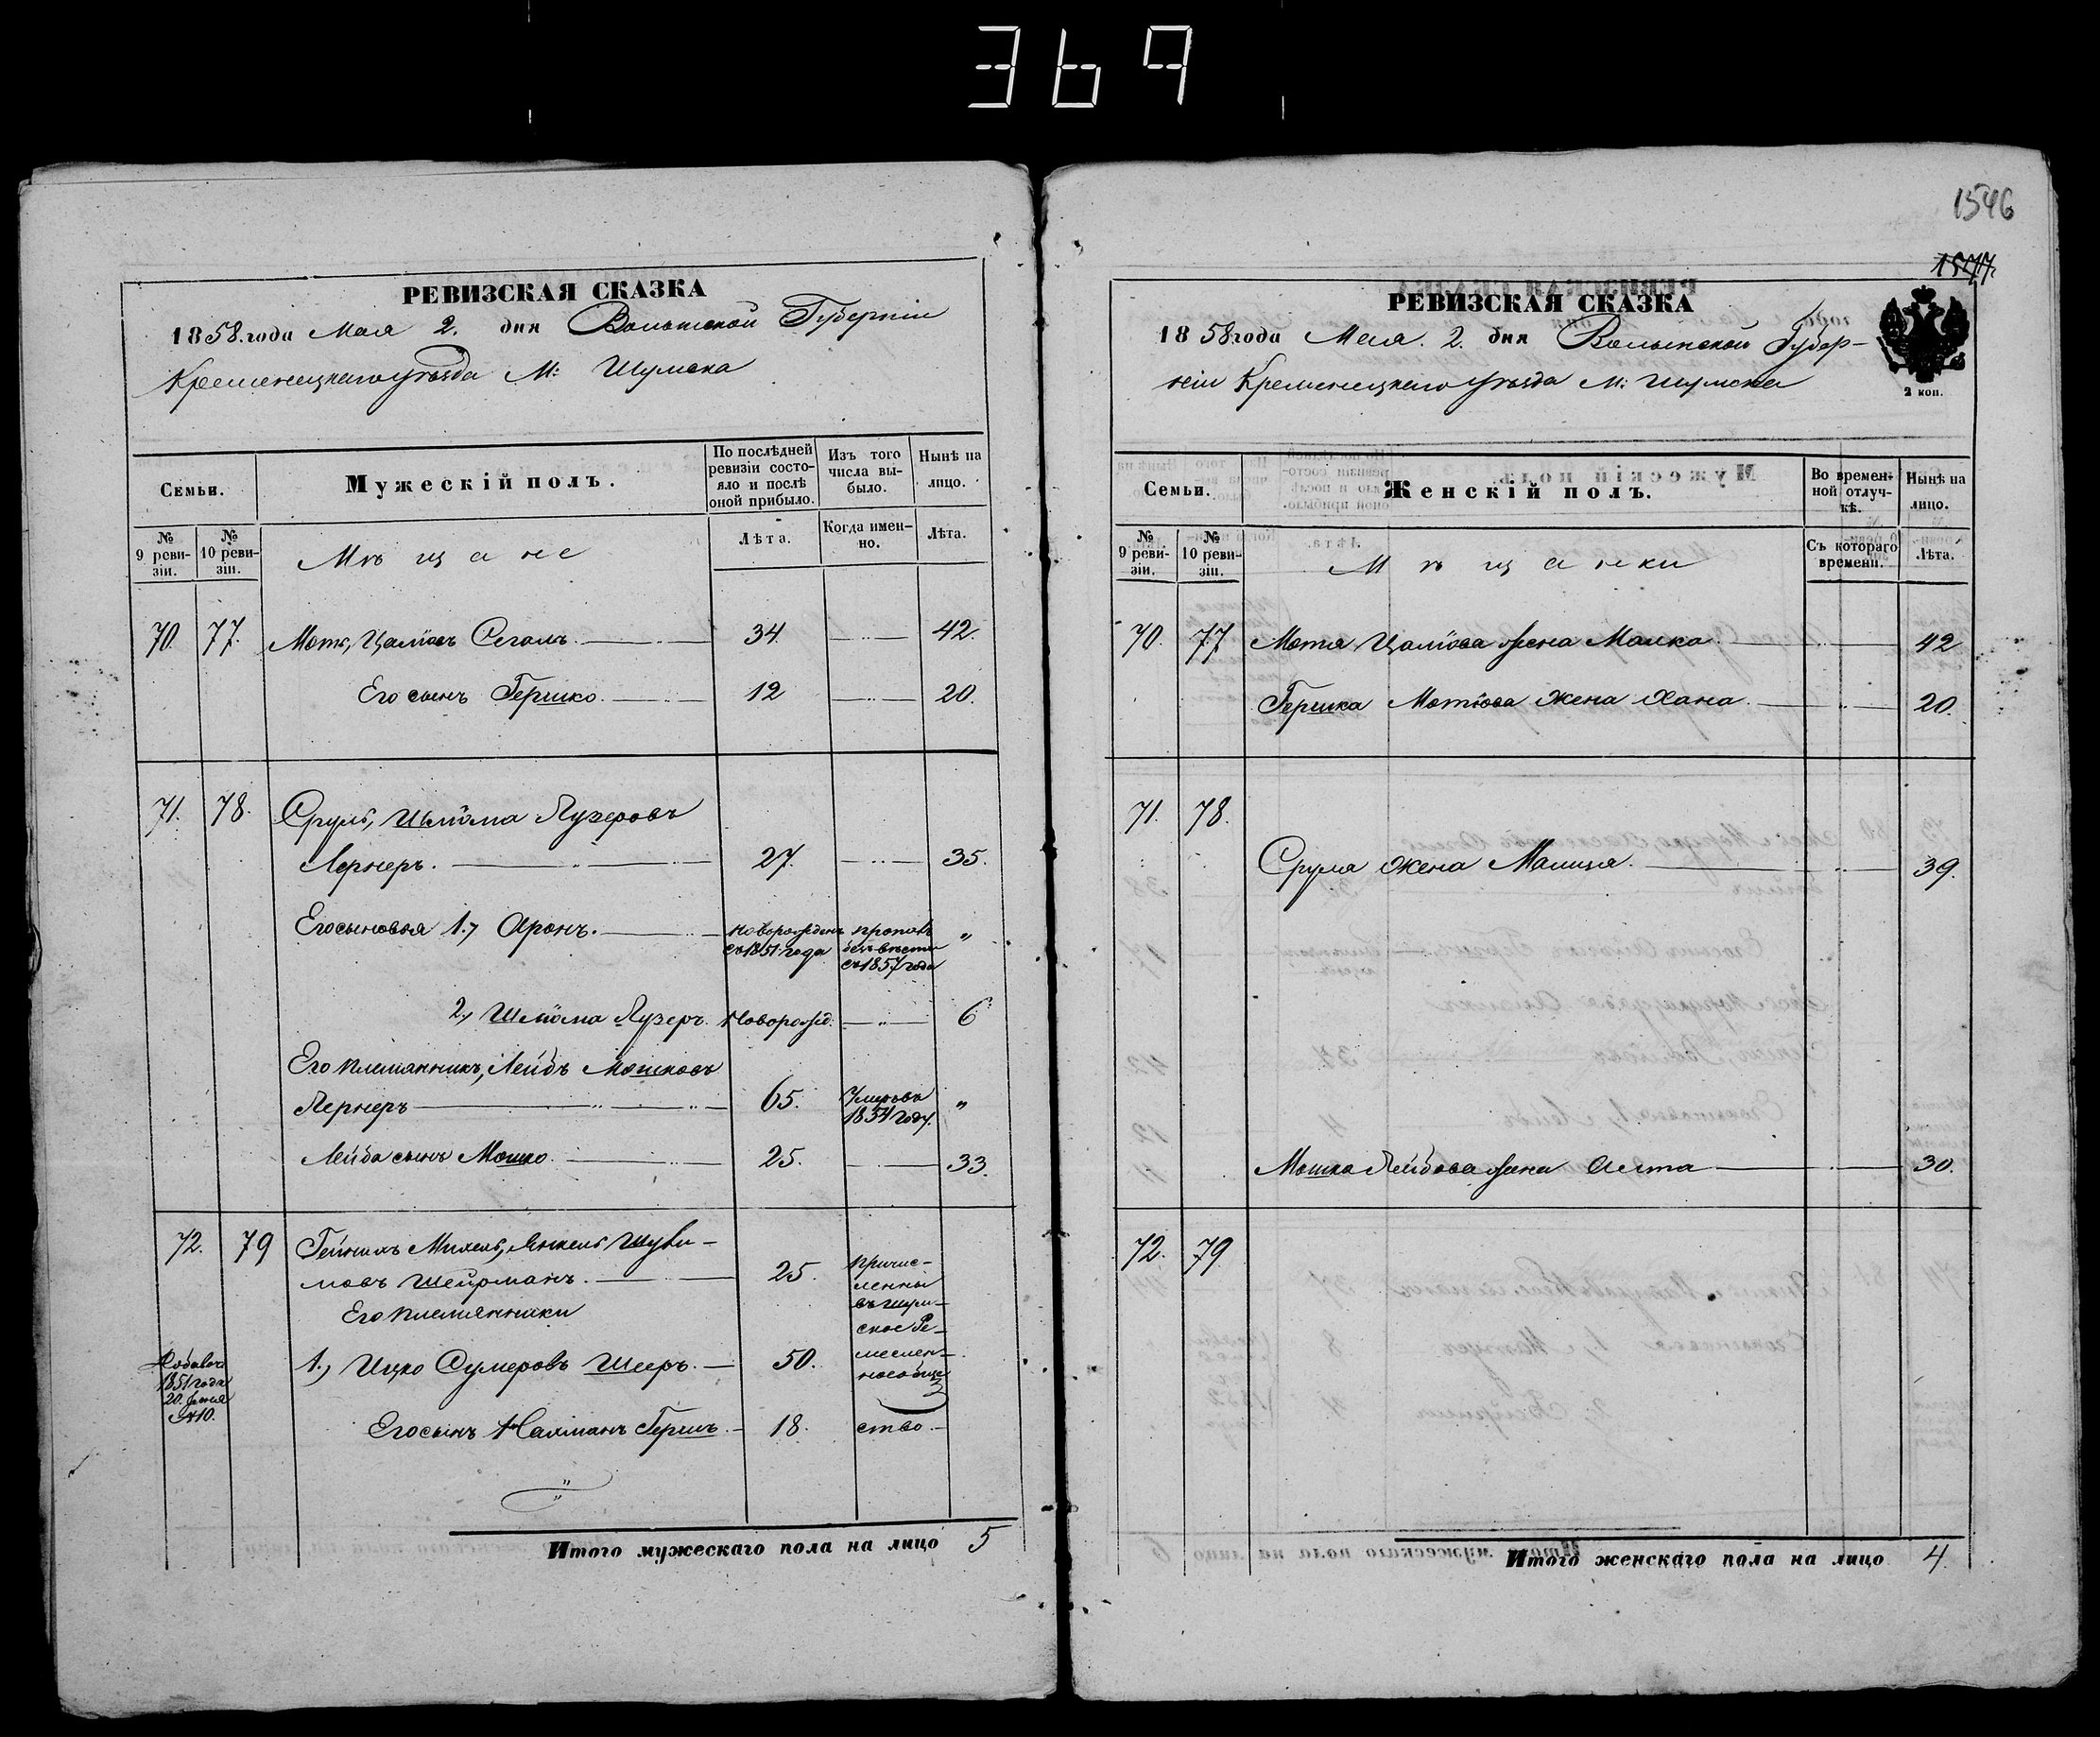 369
РЕВИЗСКАЯ СКАЗКА
1858 года Мая 2. дня Волынской Губернiи
Кременецкаго уѣзда М: Шумска
Семьи.
Мужескій полъ.
По послѣдней ревизіи состояло и послѣ оной прибыло.
Изъ того числа выбыло.
Нынѣ на лицо.
№ 9 ревизіи.
№ 10 ревизіи.
Мѣщане
Лѣта.
Когда именно.
Лѣта.
70. 77. Мотя, Цалiовъ Сегалъ. 34. 42.
Его сынъ Гершко. 12 20.
71. 78. Сруль, Шлiома Лузеровъ
Лернеръ. 27. 35.
Его сыновья 1., Аронъ. новорожденъ съ 1851 года пропавъ безъ вѣсти съ 1857 года „
2., Шлiома Лузеръ. Новорожд. 6
Его племянникъ, Лейбъ Мошковъ
Лернеръ 65. Умеръ въ 1854 году. „
Лейба сынъ Мошко. 25. 33.
72. 79 Гейнихъ Михель, Янкель
Шейрманъ. 25. причисленны въ Шумское Ремесленное обще
Его племянники
Добавоч. 1851 года 20. Июня №10.
1., Ицко Сумеровъ Шееръ. 50.
Его сынъ Нахманъ Гершъ. 18. ство.
Итого мужескаго пола на лицо 5
1546
1547.
РЕВИЗСКАЯ СКАЗКА
1858 года Мая. 2. дня Волынской Губер-
нiи Кременецкаго уѣзда М: Шумска
2 коп.
Семьи.
Женскій полъ.
Во временной отлучкѣ.
Нынѣ на лицо.
№ 9 ревизіи.
№ 10 ревизіи.
Мѣщанки
Съ котораго времени.
Лѣта.
70. 77 Мотя Цалiова жена Малка. 42
Гершка Мотiова жена Хана. 20.
71. 78.
Сруля жена Малця. 39.
Мошка Лейбова жена Алта 30.
72. 79.
Итого женскаго пола на лицо 4.